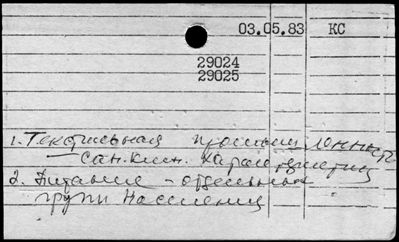 03.05.83 КС
29024
29025
1. Текстильная промышленность
— сан.-гиг. характеристика
2. Питание - отдельных
групп населения